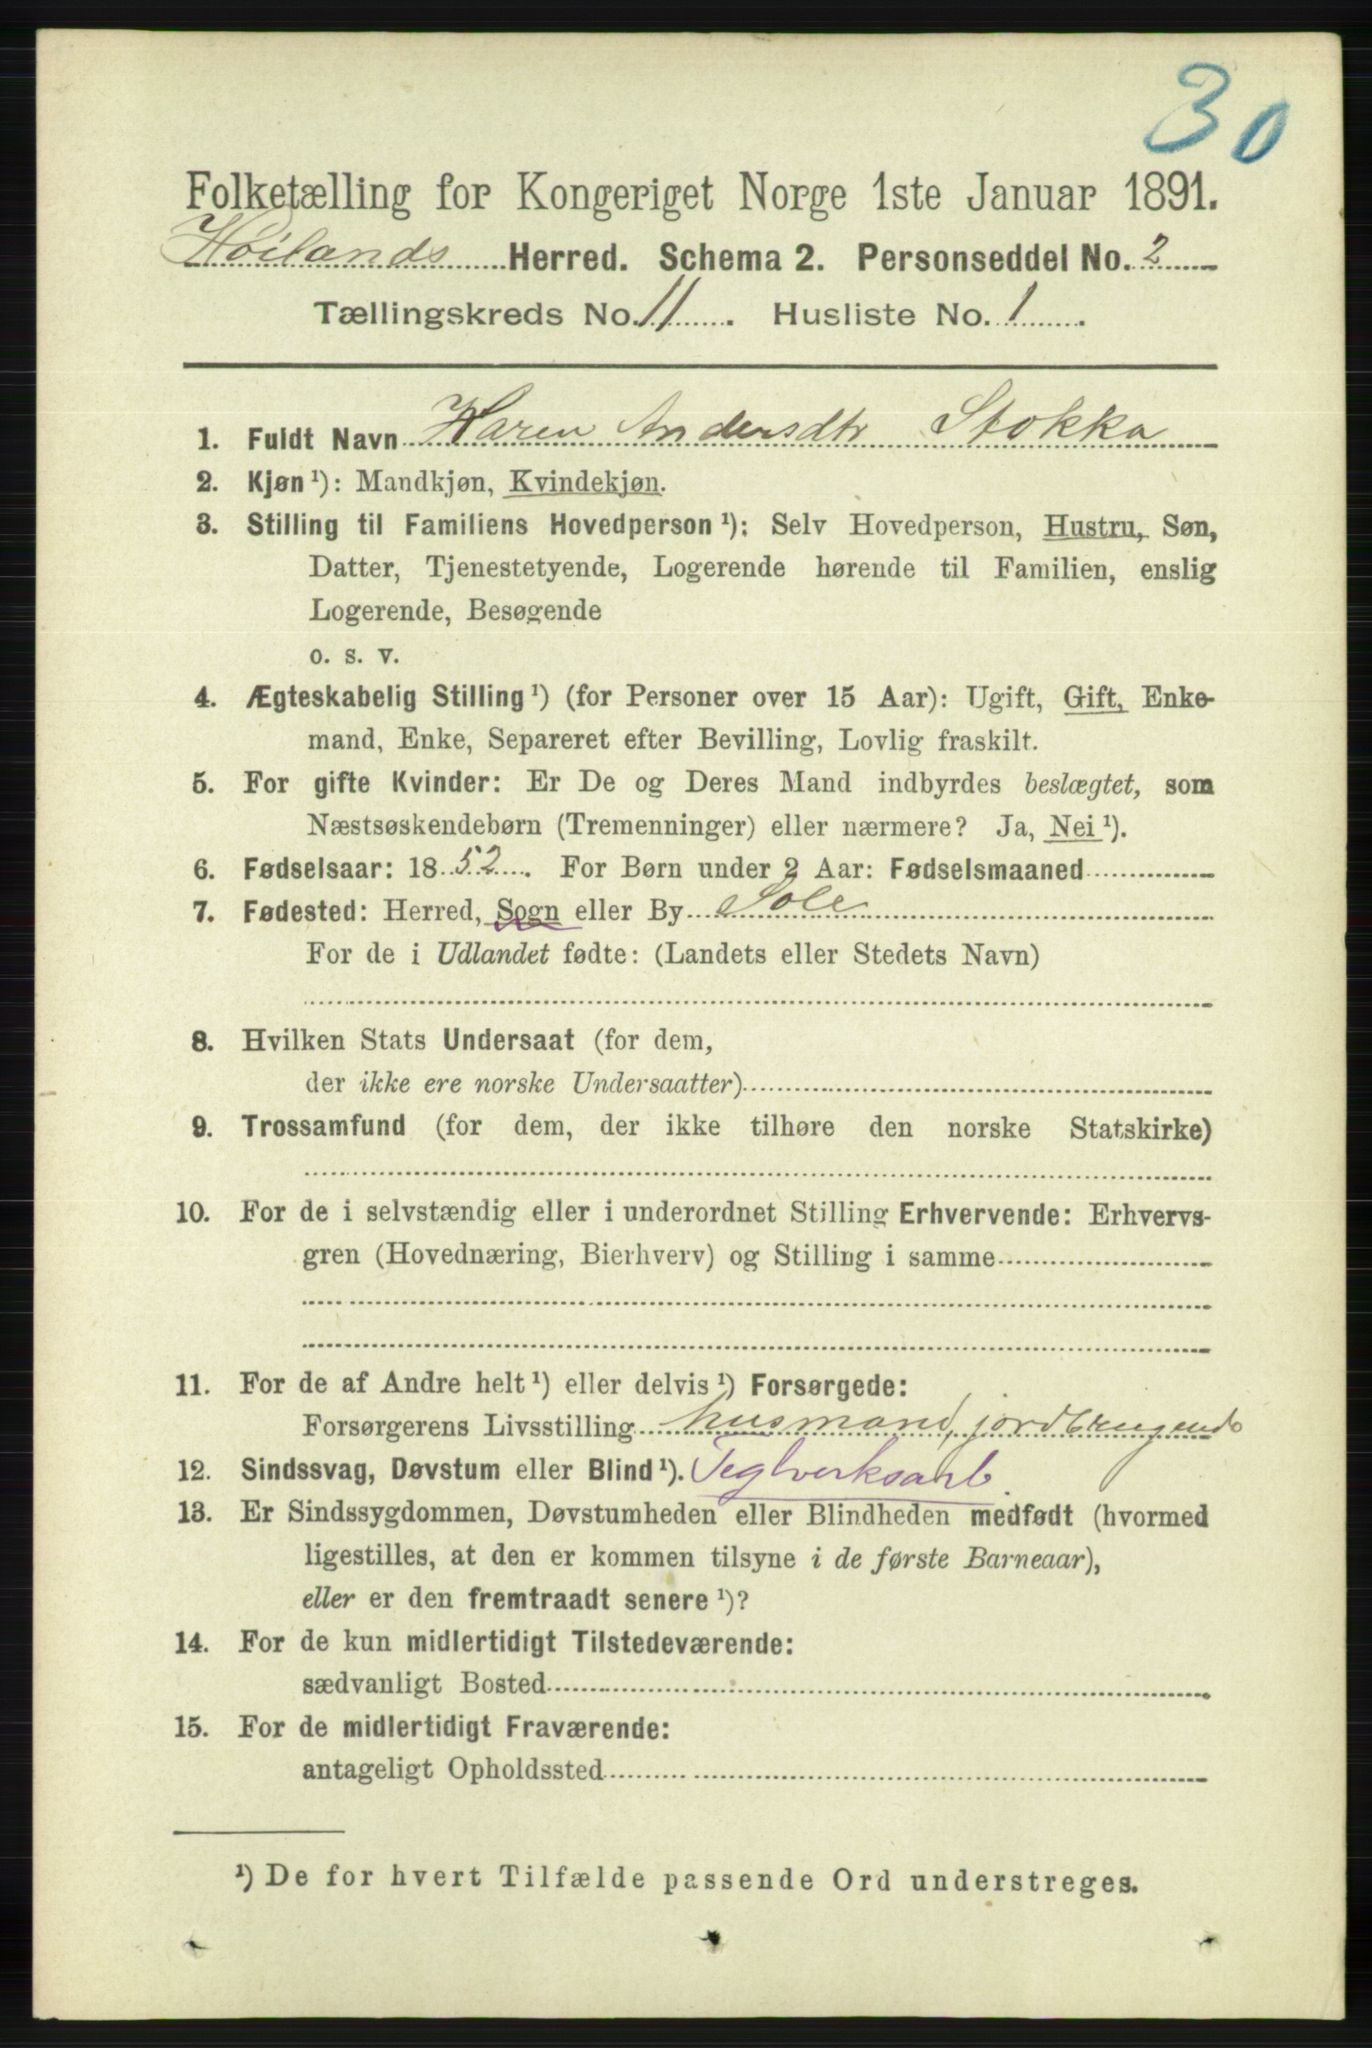 30
Folketælling for Kongeriget Norge 1ste Januar 1891.
Høilands Herred. Schema 2. Personseddel No. 2
Tællingskreds No. 11. Husliste No. 1.
1. Fuldt Navn Karen Andersdtr Stokka
2. Kjøn ¹): Mandkjøn, Kvindekjøn.
3. Stilling til Familiens Hovedperson ¹): Selv Hovedperson, Hustru, Søn,
Datter, Tjenestetyende, Logerende hørende til Familien, enslig
Logerende, Besøgende
o. s. v.
4. Ægteskabelig Stilling ¹) (for Personer over 15 Aar): Ugift, Gift, Enke-
mand, Enke, Separeret efter Bevilling, Lovlig fraskilt.
5. For gifte Kvinder: Er De og Deres Mand indbyrdes beslægtet, som
Næstsøskendebørn (Tremenninger) eller nærmere? Ja, Nei ¹).
6. Fødselsaar: 1852. For Børn under 2 Aar: Fødselsmaaned
7. Fødested: Herred, Sogn eller By Sole
For de i Udlandet fødte: (Landets eller Stedets Navn)
8. Hvilken Stats Undersaat (for dem,
der ikke ere norske Undersaatter)
9. Trossamfund (for dem, der ikke tilhøre den norske Statskirke)
10. For de i selvstændig eller i underordnet Stilling Erhvervende: Erhvervs-
gren (Hovednæring, Bierhverv) og Stilling i samme
11. For de af Andre helt ¹) eller delvis ¹) Forsørgede:
Forsørgerens Livsstilling husmand, jordbrugende
12. Sindssvag, Døvstum eller Blind ¹). Teglverksarb.
13. Er Sindssygdommen, Døvstumheden eller Blindheden medfødt (hvormed
ligestilles, at den er kommen tilsyne i de første Barneaar),
eller er den fremtraadt senere ¹)?
14. For de kun midlertidigt Tilstedeværende:
sædvanligt Bosted
15. For de midlertidigt Fraværende:
antageligt Opholdssted
¹) De for hvert Tilfælde passende Ord understreges.